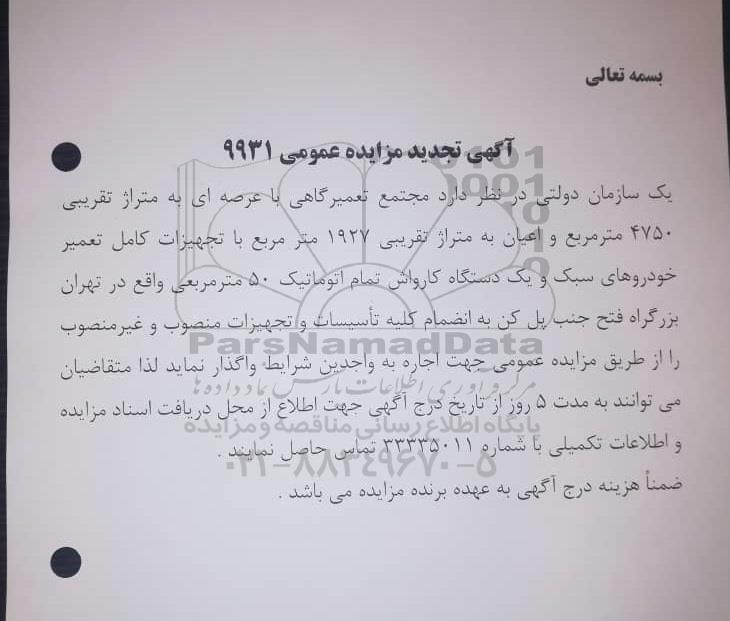 بسمه تعالی
آگهی تجدید مزایده عمومی ۹۹۳۱
یک سازمان دولتی در نظر دارد مجتمع تعمیرگاهی با عرصه ای به متراژ تقریبی
۴۷۵۰ مترمربع و اعیان به متراژ تقریبی ۱۹۲۷ متر مربع با تجهیزات کامل تعمیر
خودروهای سبک و یک دستگاه کارواش تمام اتوماتیک ۵۰ مترمربعی واقع در تهران
بزرگراه فتح جنب پل کن به انضمام کلیه تأسیسات و تجهیزات منصوب و غیرمنصوب
ParsNamadData
را از طریق مزایده عمومی جهت اجاره به واجدین شرایط واگذار نماید لذا متقاضیان
مرکز فرآوری اطلاعات پارس نماد داده ها
می توانند به مدت ۵ روز از تاریخ درج آگهی جهت اطلاع از محل دریافت اسناد مزایده
پایگاه اطلاع رسانی مناقصه و مزایده
و اطلاعات تکمیلی با شماره ۳۳۳۳۵۰۱۱ تماس حاصل نمایند .
۰۲۱-۸۸۳۴۹۶۷۰-۵
ضمناً هزینه درج آگهی به عهده برنده مزایده می باشد .